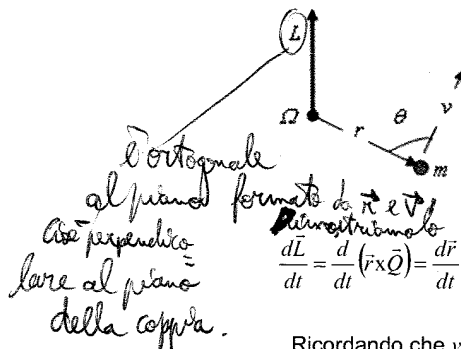 L
Ω r θ v
m
è ortogonale
al piano formato da r⃗ e v⃗
Dimostriamolo
cioè perpendico
=
lare al piano
della coppia.
dL⃗/dt = d/dt (r⃗xQ⃗) = dr⃗/dt
Ricordando che v